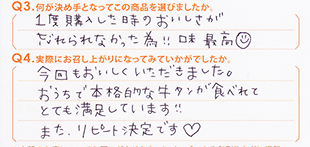 Q3.何が決め手となってこの商品を選びましたか。
1度購入した時のおいしさが
忘れられなかった為!! 味 最高☺
Q4.実際にお召し上がりになってみていかがでしたか。
今回もおいしくいただきました。
おうちで本格的な牛タンが食べれて
とても満足しています!!
また、リピート決定です♡